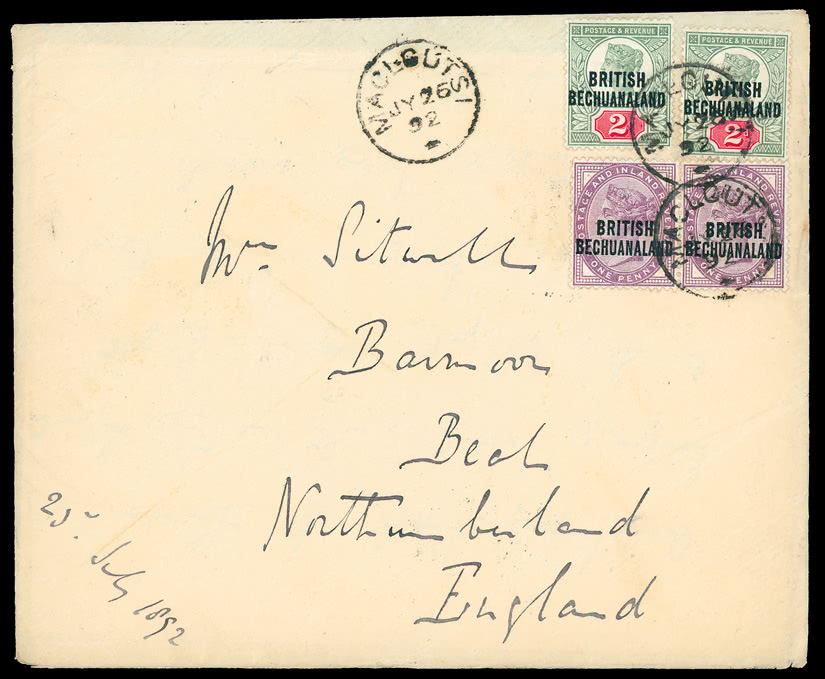 MACLOUTSI
JY 26
92
POSTAGE & REVENUE
BRITISH
BECHUANALAND
2
POSTAGE & REVENUE
BRITISH
BECHUANALAND
2
MACLOU
92
POSTAGE AND INLAND
BRITISH
BECHUANALAND
ONE PENNY
INLAND RE
BRITISH
BECHUANALAND
ONE PENNY
MACLOUT
92
Mrs Sitwell
Barmoor
Beal
Northumberland
England
July 1892